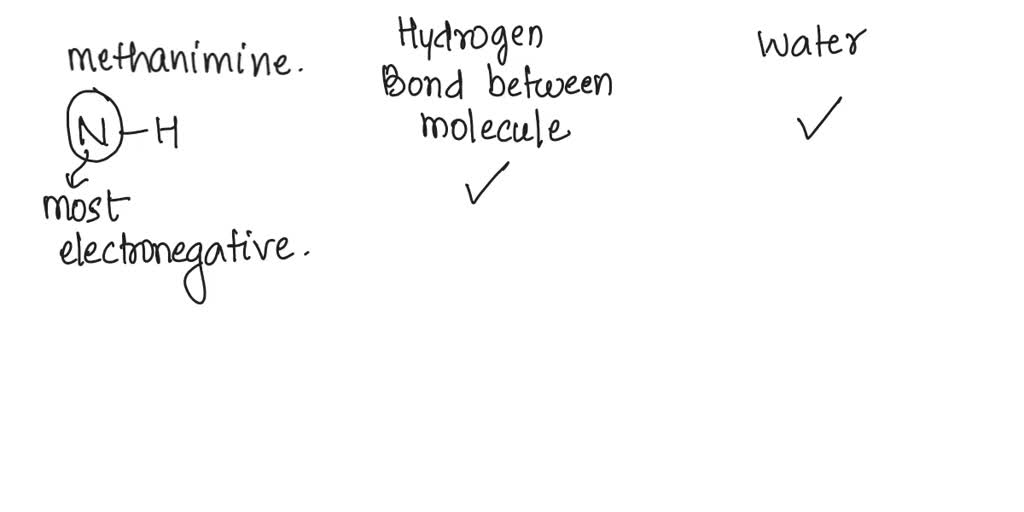 methanimine.
N-H
most
electronegative.
Hydrogen
Bond between
molecule
✓
Water
✓